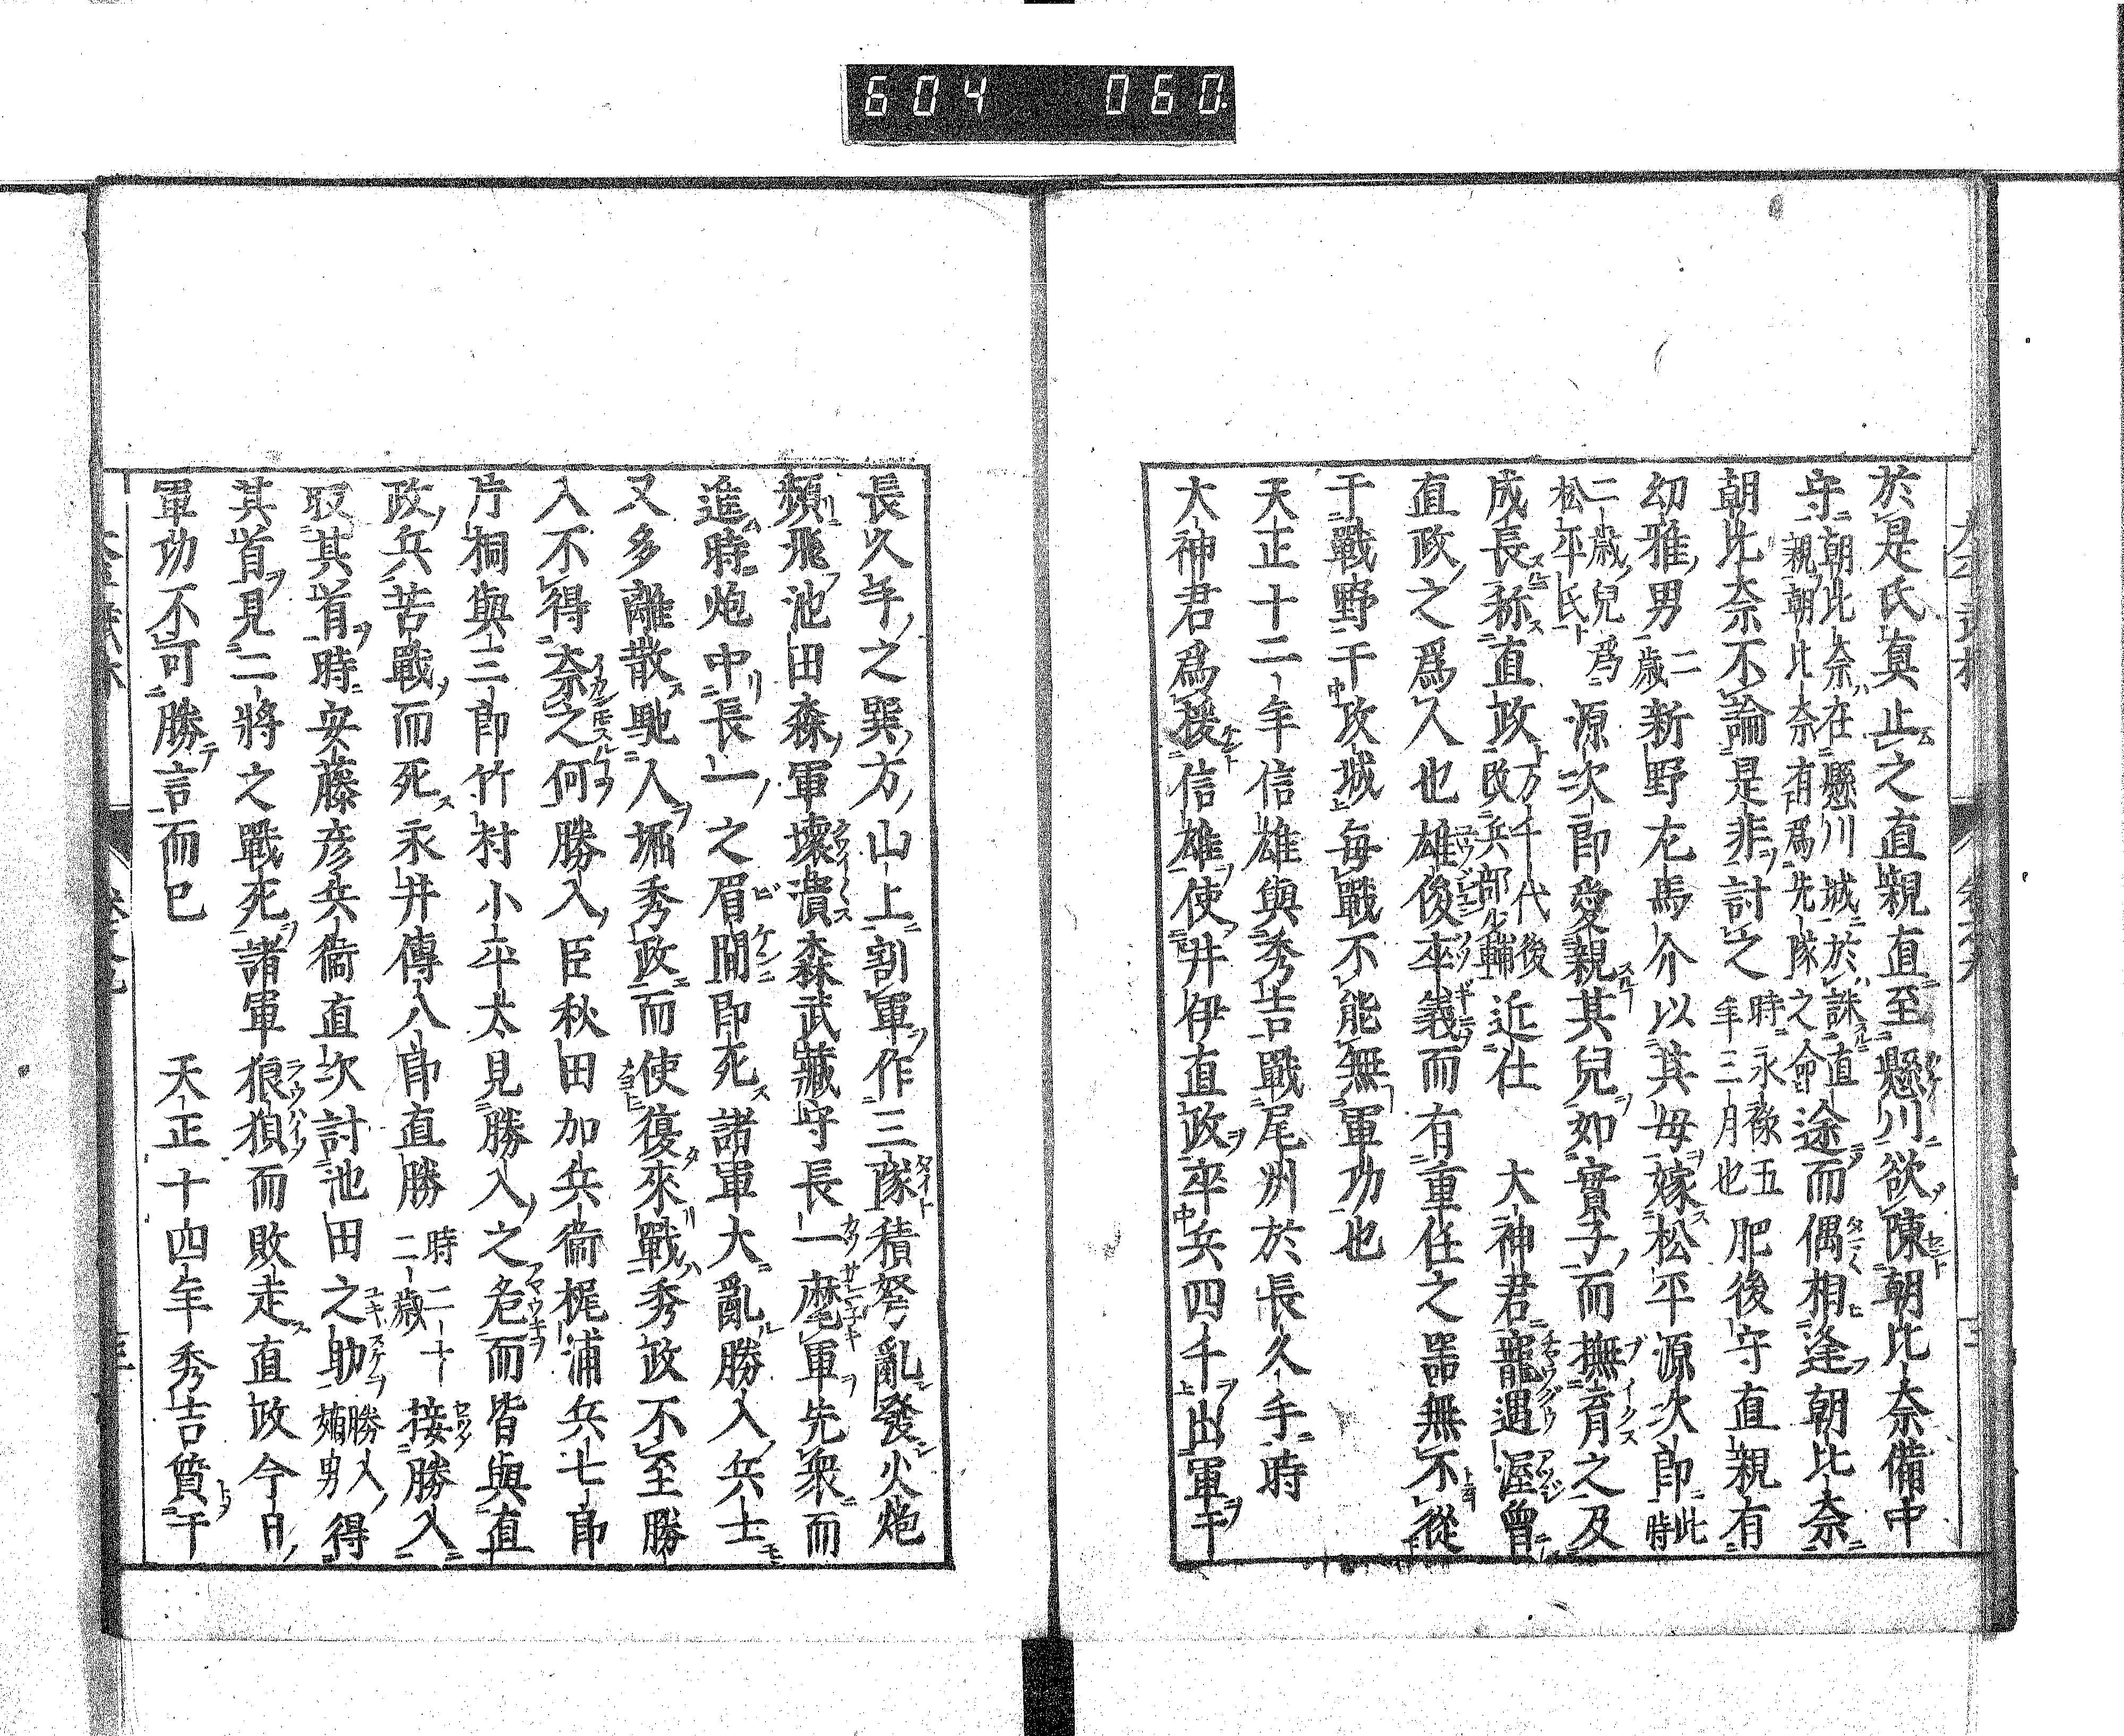 604 060
於是氏真止之直親直至懸川欲陳朝比奈備中
守朝比奈在懸川城於誅直親朝比奈有爲先隊之命途而偶相逢朝比奈
朝比奈不論是非討之時永祿五年三月也肥後守直親有
幼雅男二歳新野左馬介以其母嫁松平源次郎此時
二歳兒爲松平氏源次郎愛親其兒如實子而撫育之及
成長称直政万千代後改兵部少輔近仕 大神君寵遇渥曾
直政之爲人也雄俊卒義而有重任之器無不從
于戰野干攻城每戰不能無軍功也
天正十二年信雄與秀吉戰尾州於長久手時
大神君爲援信雄使井伊直政卒兵四千出軍于
長久手之巽方山上割軍作三隊積弩亂發火炮
頻飛池田森軍壞潰森武藏守長一麾軍先衆而
進時炮中長一之眉間即死諸軍大亂勝入兵士
又多離散馳人堀秀政而使復來戰秀政不至勝
入不得奈之何勝入臣秋田加兵衞梶浦兵七郎
片桐與三郎竹村小平太見勝入之危而皆與直
政兵苦戰而死永井傳八郎直勝時二十二歳接勝入
取其首時安藤彦兵衞直次討池田之助勝入嫡男得
其首見二將之戰死諸軍狼狽而敗走直政今日
軍功不可勝言而已 天正十四年秀吉質于